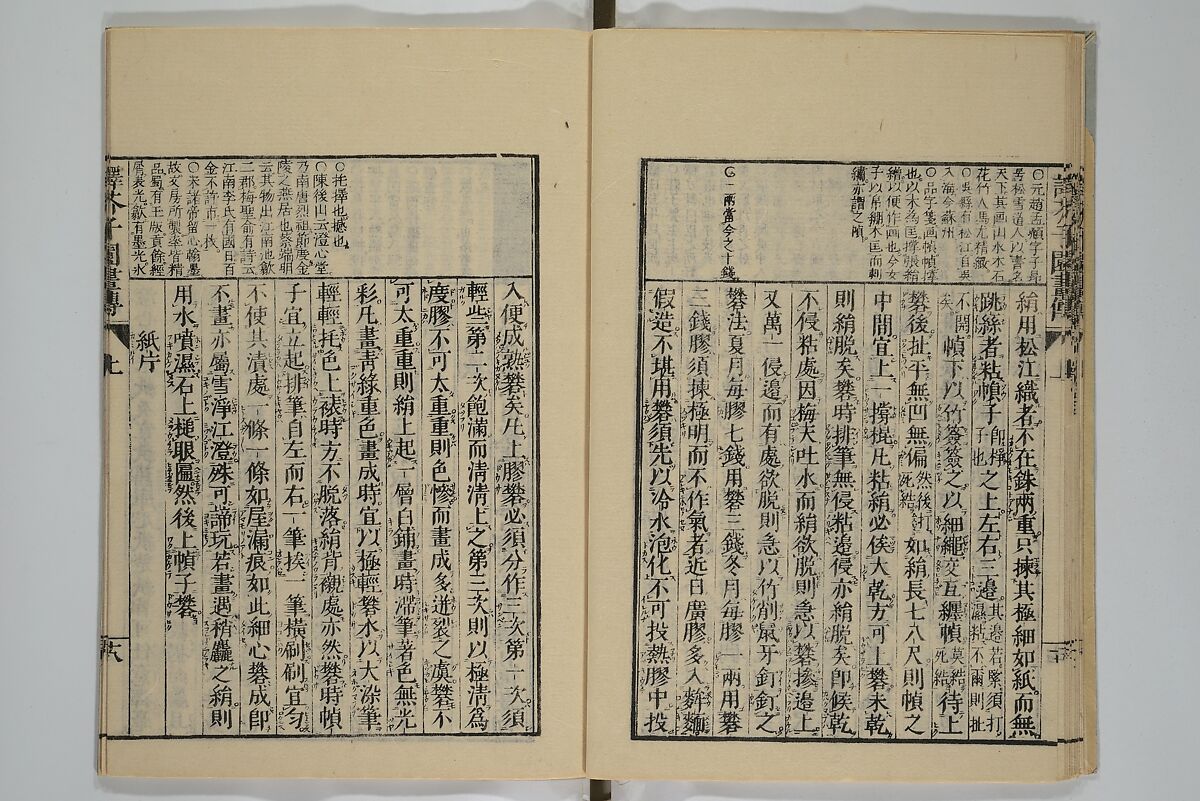 ○元趙孟頫字子昻
号松雪道人以書名
天下其画山水木石
花竹人馬尤精緻
○吳縣有松江自吳
入海今蘇州
○品字箋画幀撑
也以木為匡撑張絹
繒以便作画也今女
子以帛綳木匡而刺
繡亦謂之幀
○一兩當今之十錢
絹用松江織者不在銖兩重只揀其極細如紙而無
跳絲者粘幀子即撑子也之上左右三邊其邊若緊須打濕粘不爾則扯
不開幀下以竹簽簽之以細繩交互纏幀莫結死結待上
礬後扯平無凹無偏然後打死結如絹長七八尺則幀之
中間宜上一撑棍凡粘絹必俟大乾方可上礬未乾
則絹脫矣礬時排筆無侵粘邊侵亦絹脫矣即候乾
不侵粘處因梅天吐水而絹欲脫則急以礬摻邊上
又萬一侵邊而有處欲脫則急以竹削鼠牙釘釘之
礬法夏月每膠七錢用礬三錢冬月每膠一兩用礬
三錢膠須揀極明而不作氣者近日廣膠多入麪麵
假造不堪用礬須先以冷水泡化不可投熱膠中投
譯本芥子園畫傳
上
○托擇也撼也
○陳後山云澄心堂
乃南唐烈祖節度金
陵之燕居也蔡端明
云其物出江南池歙
二郡梅聖俞有詩云
江南李氏有國日百
金不許市一枚
○宋諸帝留心翰墨
故文房所製率皆精
品蜀有王版貢餘經
屑表光歙有墨光氷
入便成熟礬矣凡上膠礬必須分作三次第一次須
輕些第二次飽滿而清清上之第三次則以極清為
度膠不可太重重則色慘而畫成多迸裂之虞礬不
可太重重則絹上起一層白鋪畫時滯筆著色無光
彩凡畫青綠重色畫成時宜以極輕礬水以大染筆
輕輕托色上裱時方不脫落絹背襯處亦然礬時幀
子宜立起排筆自左而右一筆挨一筆橫刷刷宜勻
不使其漬處一條一條如屋漏痕如此細心礬成即
不畫亦屬雪淨江澄殊可諦玩若畫遇稍麤之絹則
用水噴濕石上槌眼匾然後上幀子礬
紙片
譯本芥子園畫傳
上
十六